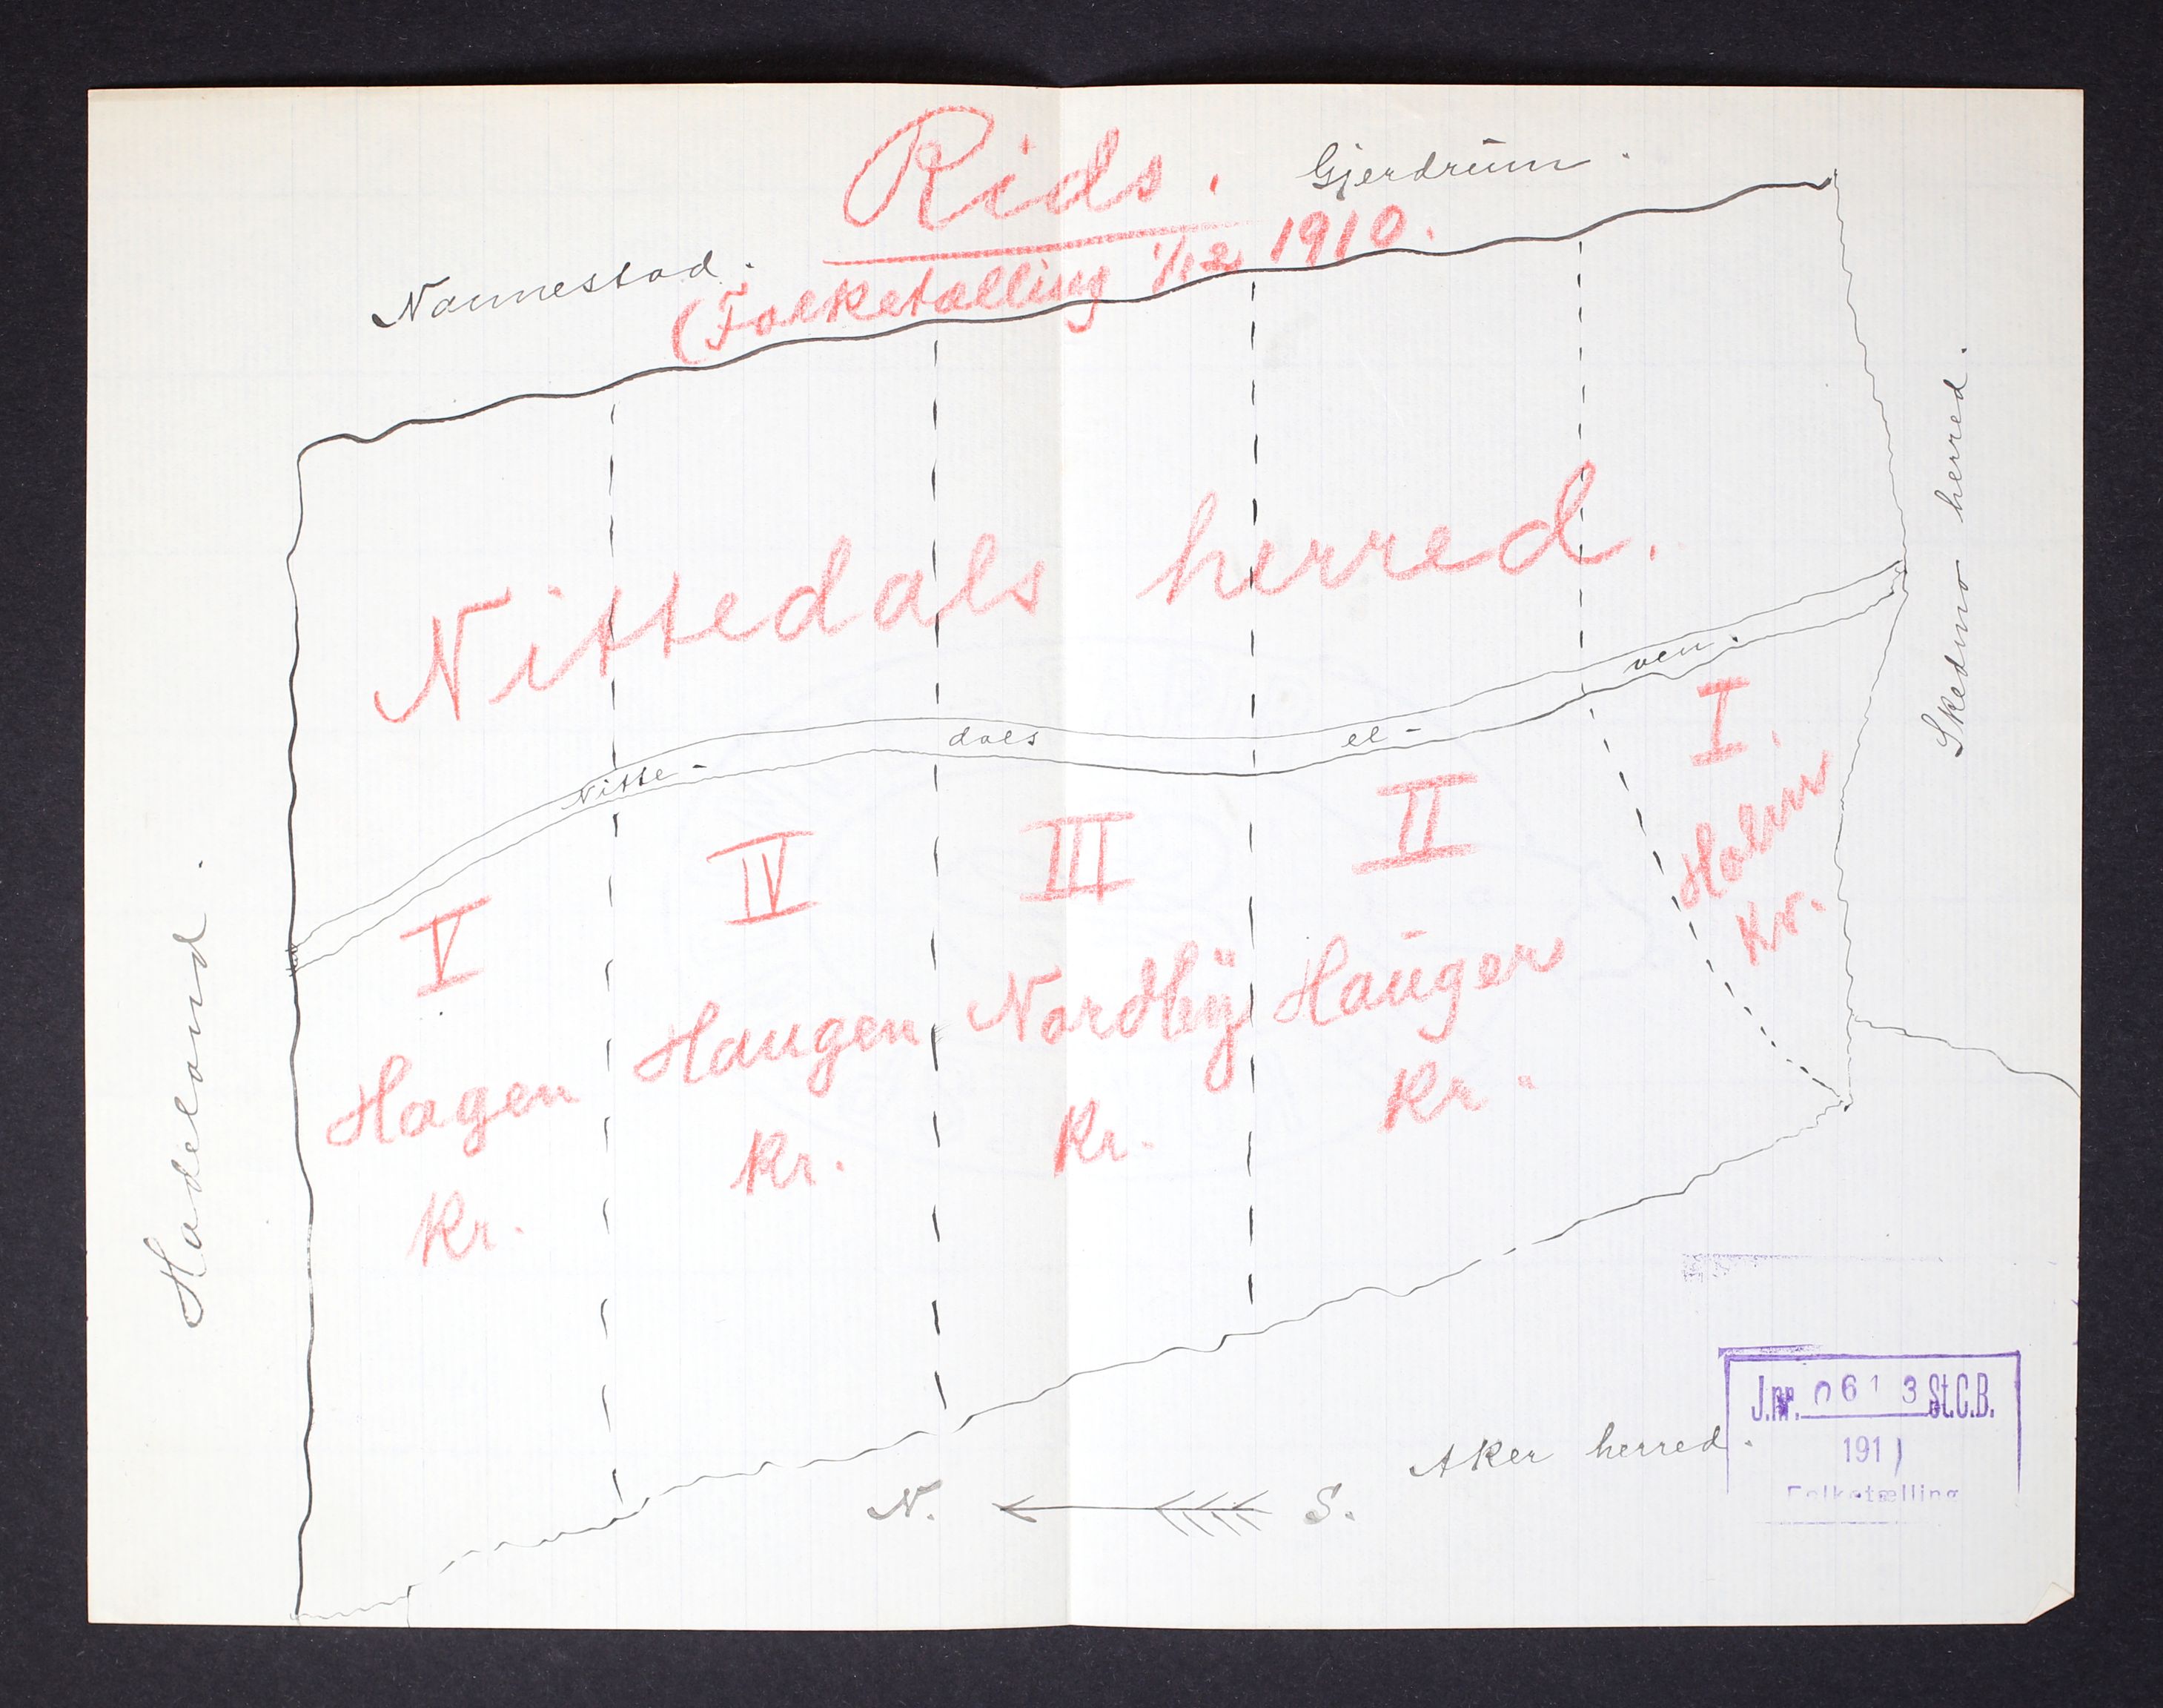 Rids.
Gjerdrum.
Nannestad.
(Folketælling 1/12 1910.
Nittedals herred.
Skedsmo herred.
Nitte-
dals
el-
ven.
I.
Holm
Kr.
II
Hauger
Kr.
III
Nordby
Kr.
IV
Haugen
Kr.
V
Hagen
Kr.
Hadeland.
Aker herred.
N.
S.
J.nr. 0613 St.C.B.
191)
Folketælling